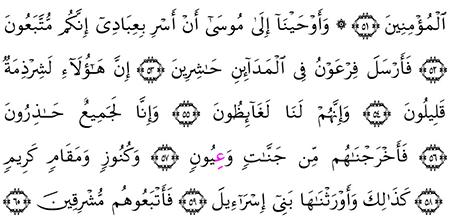 ٱلْمُؤْمِنِينَ ٥١ ۞ وَأَوْحَيْنَآ إِلَىٰ مُوسَىٰٓ أَنْ أَسْرِ بِعِبَادِىٓ إِنَّكُم مُّتَّبَعُونَ
٥٢ فَأَرْسَلَ فِرْعَوْنُ فِى ٱلْمَدَآئِنِ حَـٰشِرِينَ ٥٣ إِنَّ هَـٰٓؤُلَآءِ لَشِرْذِمَةٌ
قَلِيلُونَ ٥٤ وَإِنَّهُمْ لَنَا لَغَآئِظُونَ ٥٥ وَإِنَّا لَجَمِيعٌ حَـٰذِرُونَ
٥٦ فَأَخْرَجْنَـٰهُم مِّن جَنَّـٰتٍ وَعِيُونٍ ٥٧ وَكُنُوزٍ وَمَقَامٍ كَرِيمٍ
٥٨ كَذَٰلِكَ وَأَوْرَثْنَـٰهَا بَنِىٓ إِسْرَٰٓءِيلَ ٥٩ فَأَتْبَعُوهُم مُّشْرِقِينَ ٦٠